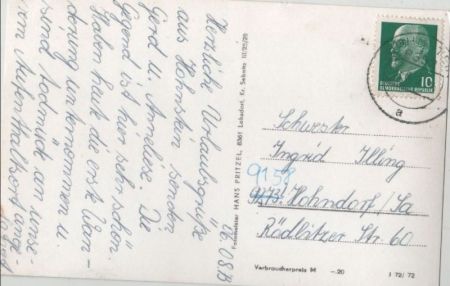 26.08.73
Herzliche Urlaubsgrüße
aus Hohnstein senden
Gerd u. Anneliese. Die
Gegend ist hier sehr schön.
Haben heute die erste Wan-
derung unternommen u.
sind todmüde an unse-
rem Aufenthaltsort ange-
Fotomeister HANS PRITZEL, 8361 Lohsdorf, Kr. Sebnitz III/25/29
10
DEUTSCHE
DEMOKRATISCHE REPUBLIK
a
Schwester
Ingrid Illing
9159
9273 Hohndorf/Sa
Rödlitzer Str. 60
Verbraucherpreis M -.20
J 72/72